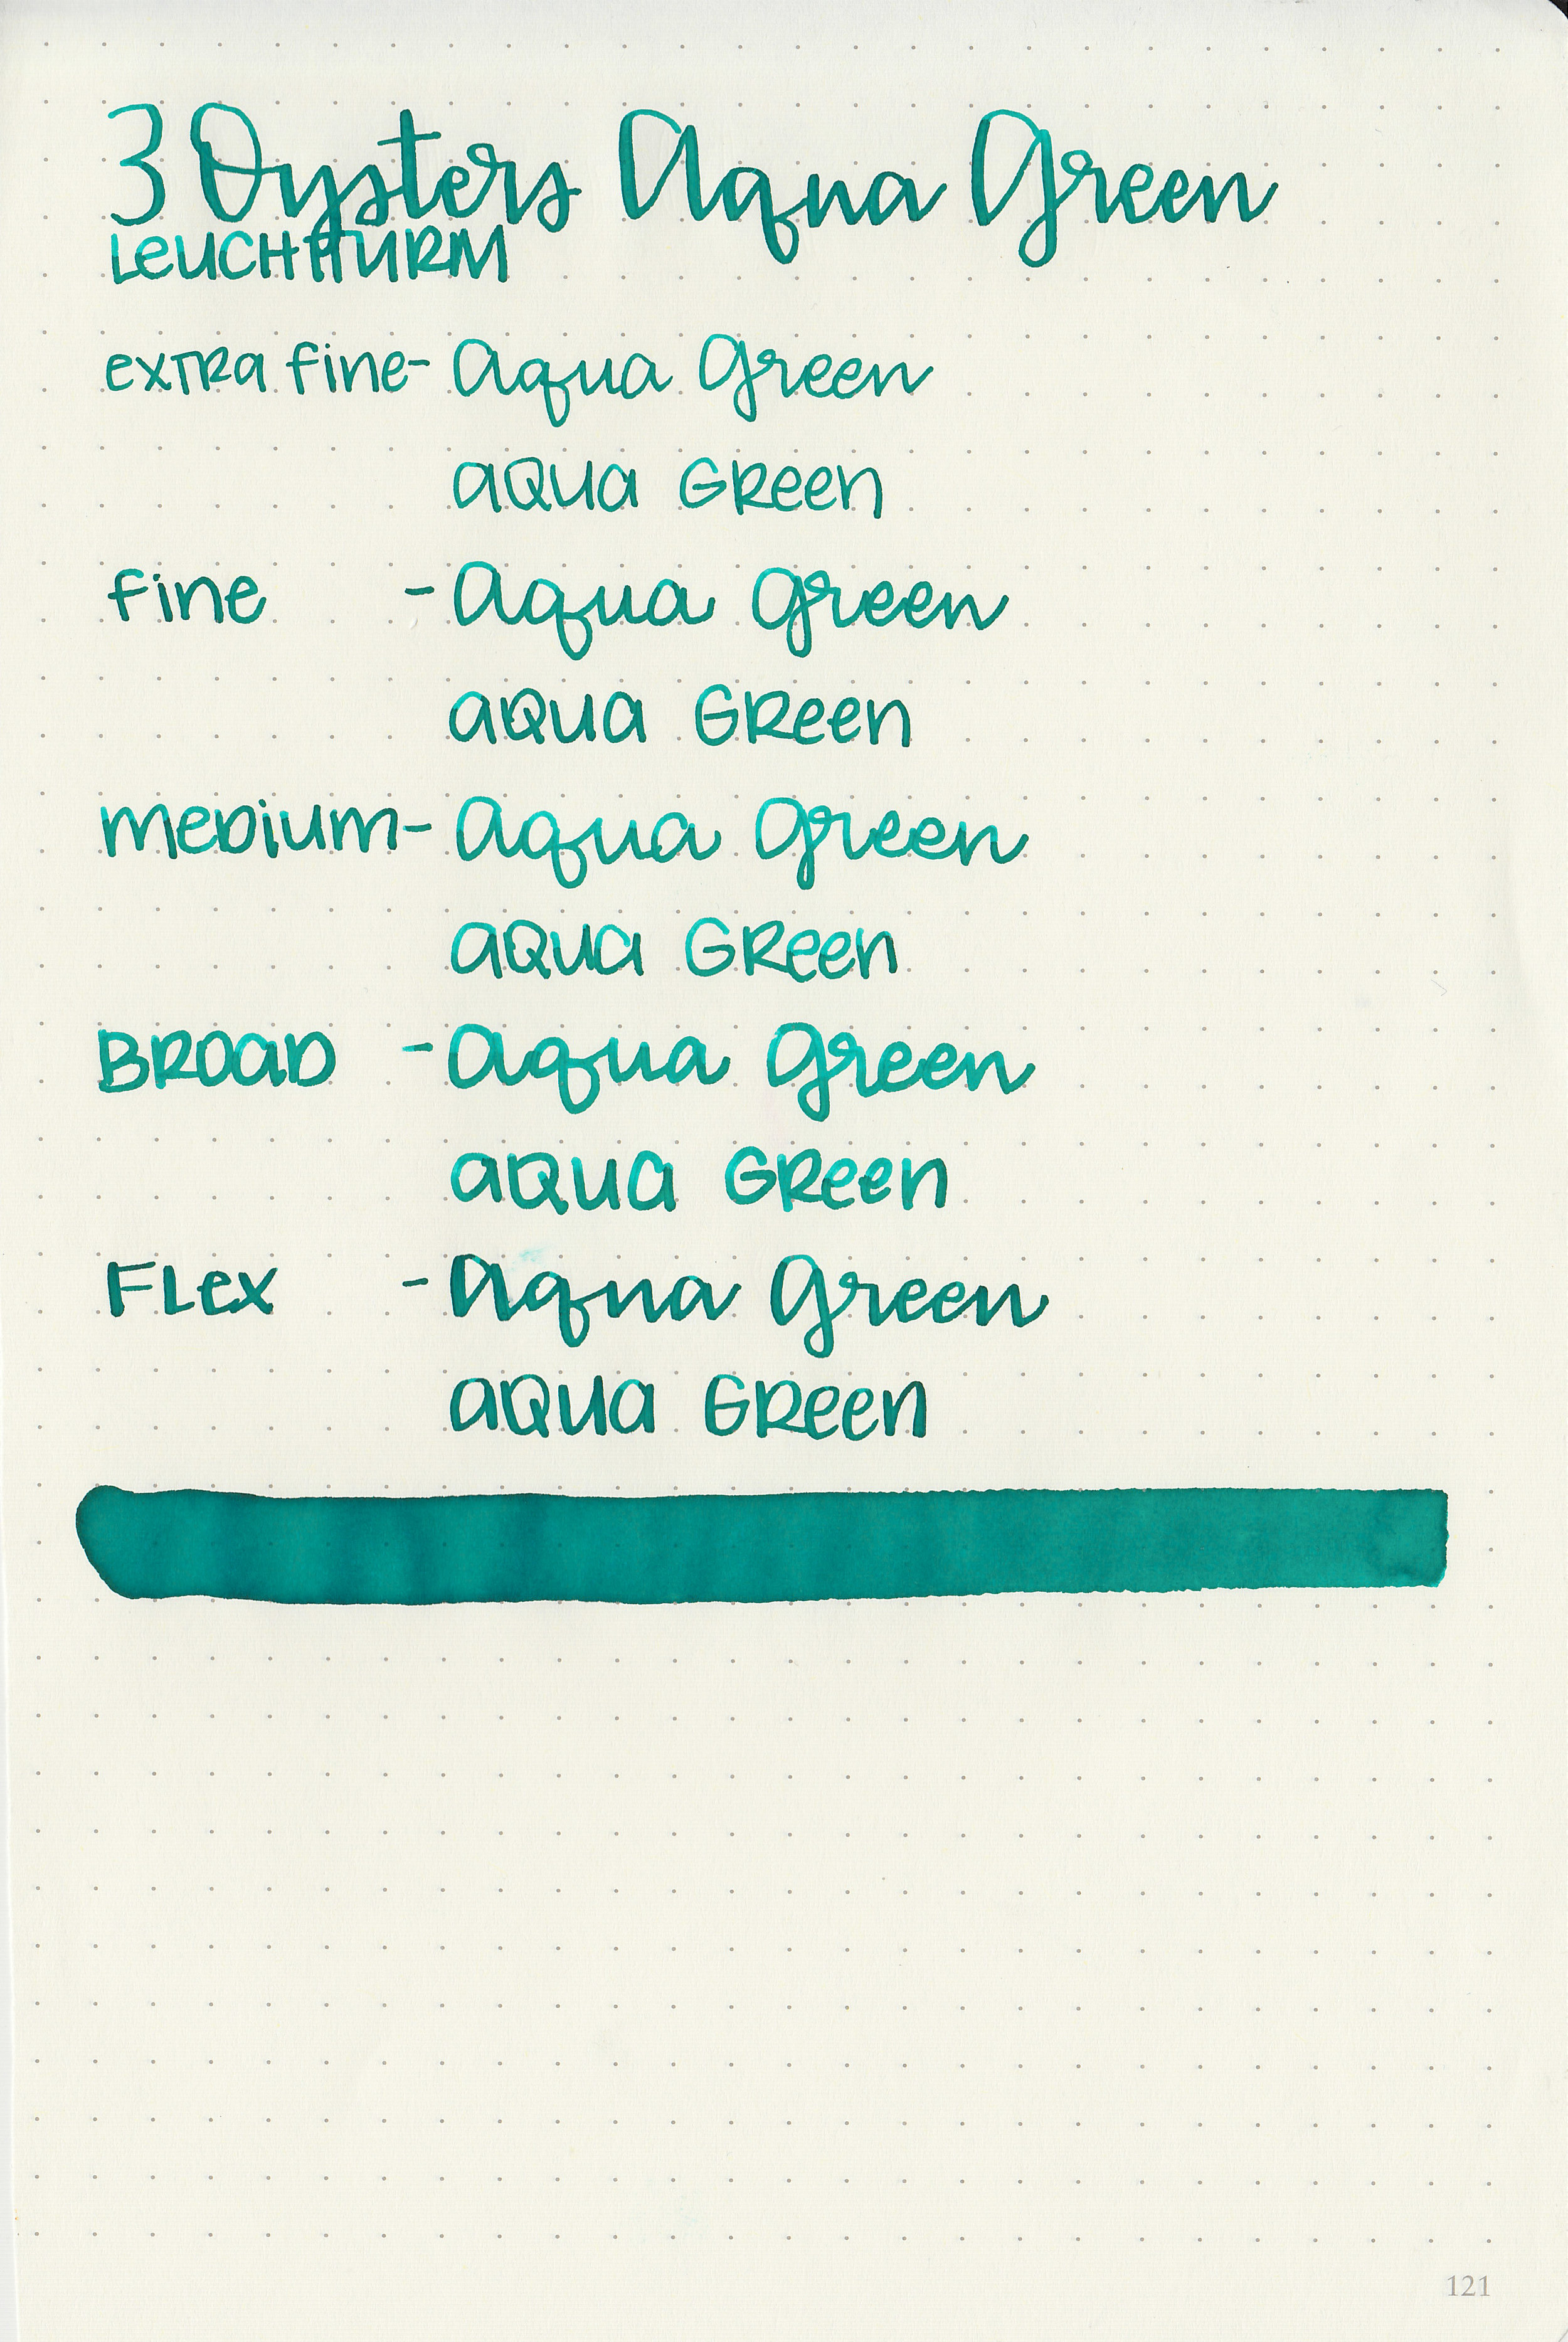 3 Oysters Aqua Green
LEUCHTTURM
extra fine - Aqua Green
aqua Green
fine - Aqua Green
aqua Green
medium - Aqua Green
aqua Green
Broad - Aqua Green
aqua Green
Flex - Aqua Green
aqua Green
121